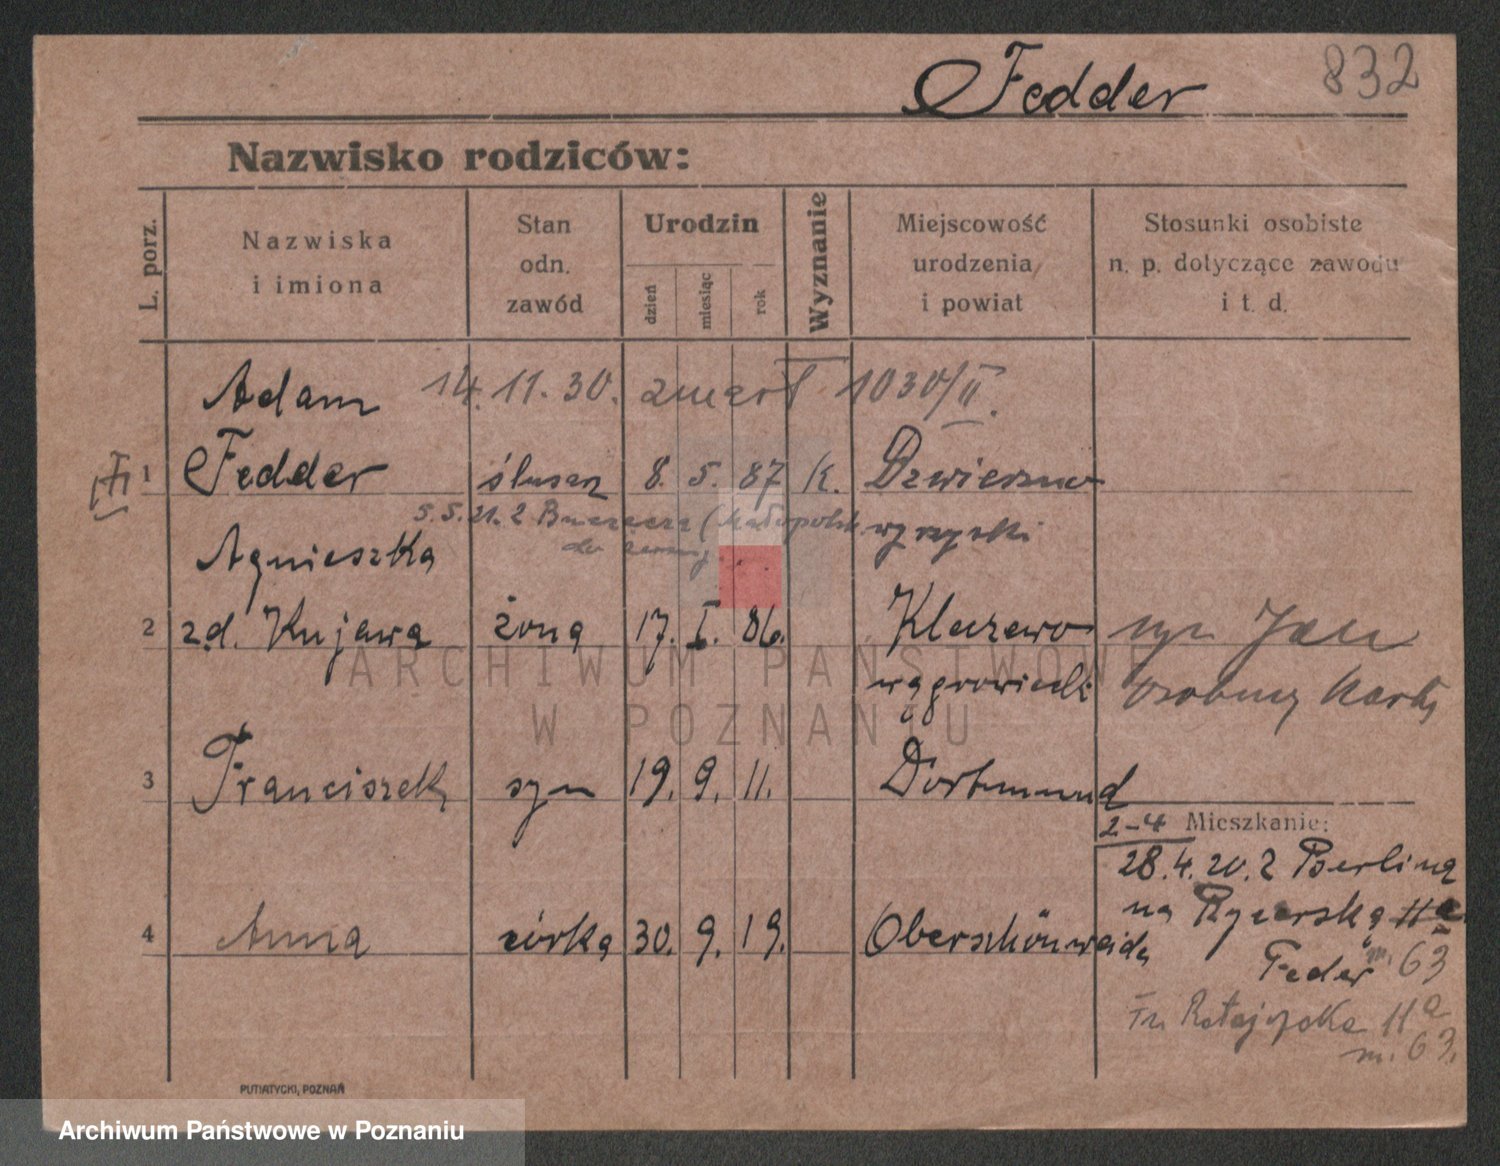 Fedder 832
Nazwisko rodziców:
L. porz. Nazwiska i imiona Stan odn. zawód Urodzin dzień miesiąc rok Wyznanie Miejscowość urodzenia i powiat Stosunki osobiste n. p. dotyczące zawodu i t. d.
Adam 14. 11. 30. zmarł 1030/II.
1 Fedder ślusarz 8. 5. 87 k. Dzwierzno
5. 5. 21. z (Małopolsk wyrzyski
Agnieszka do
2 zd. Kujawa żona 17. I. 86. Kleszewo syn Jan
wągrowiecki osobną kartę
3 Franciszek syn 19. 9. 11. Dortmund
2-4 Mieszkanie:
28. 4. 20. z Berlina
na Rycerską 11a
4 Anna córka 30. 9. 19. Oberschönweide
Feder m. 63
Fr. Ratajczaka 11a
m. 63.
PUTIATYCKI, POZNAŃ
ARCHIWUM PAŃSTWOWE
W POZNANIU
Archiwum Państwowe w Poznaniu